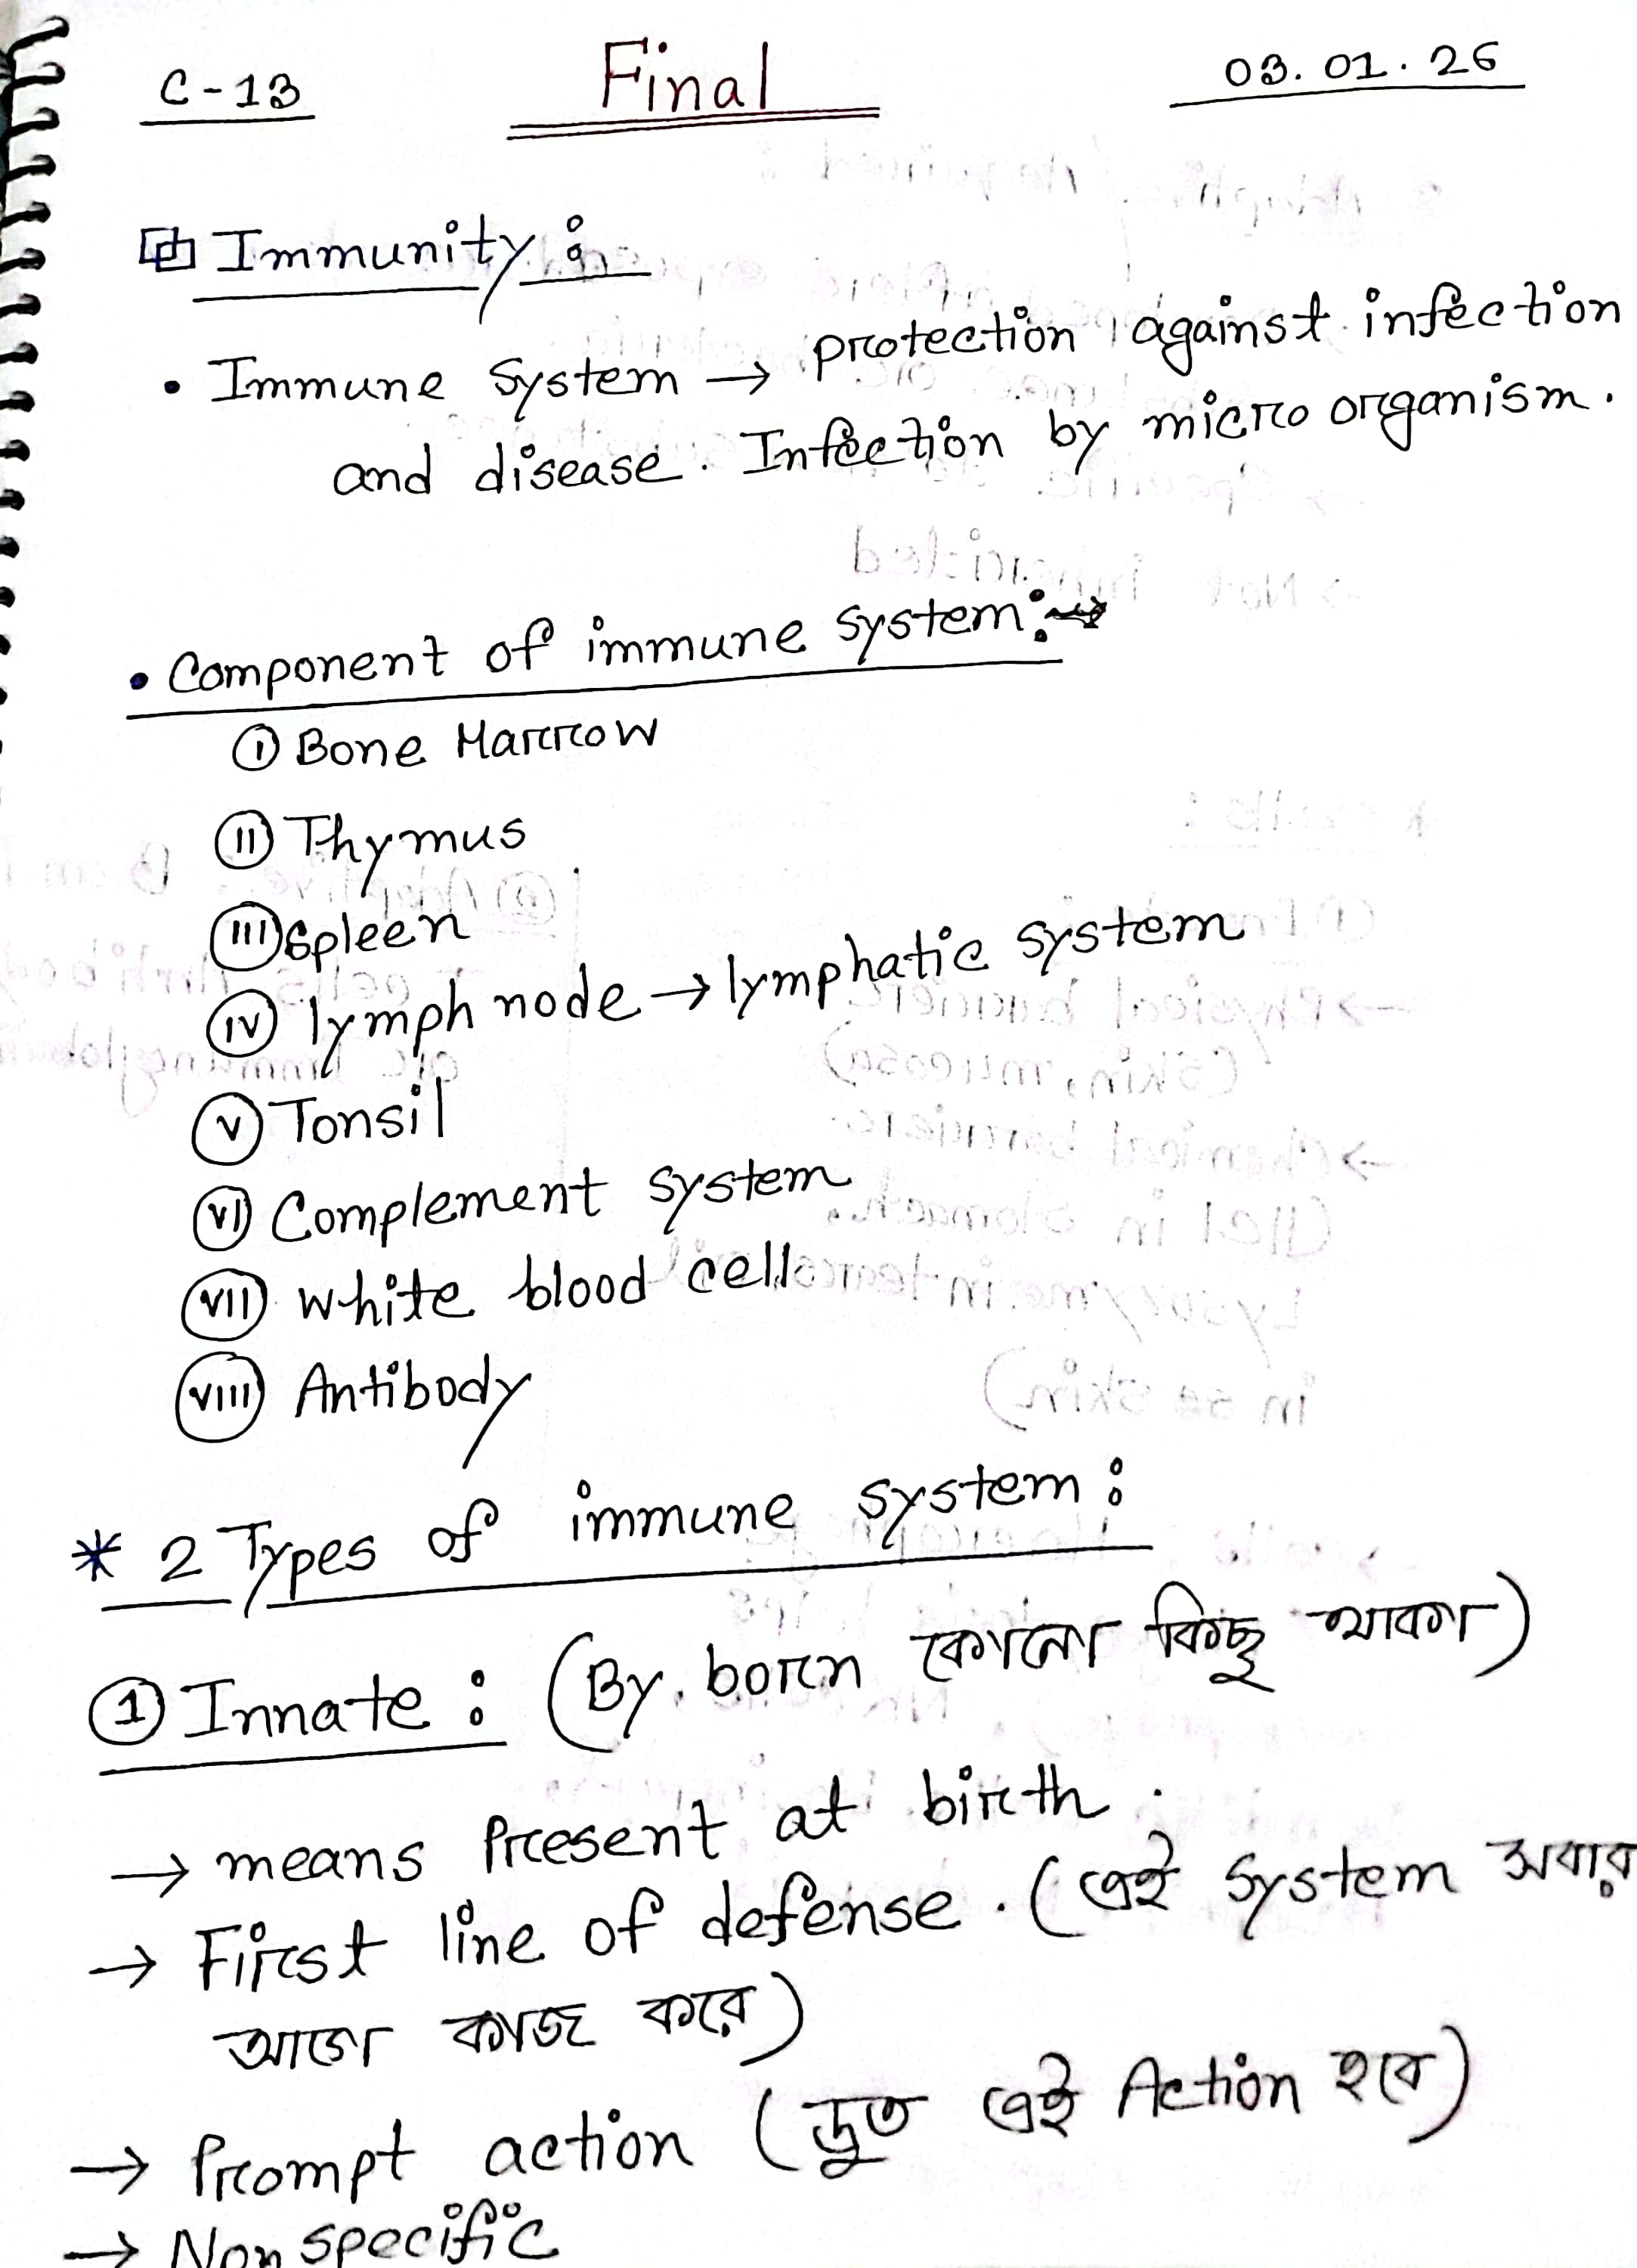 C-13 Final 03.01.26
Immunity:
• Immune system → protection against infection
and disease. Infection by micro organism.
• Component of immune system:→
(i) Bone Marrow
(ii) Thymus
(iii) Spleen
(iv) lymph node → lymphatic system
(v) Tonsil
(vi) Complement system
(vii) white blood cell
(viii) Antibody
* 2 Types of immune system:
① Innate: (By born কোনো কিছু থাকা)
→ means Present at birth.
→ First line of defense. (এই system সবার
আগে কাজ করে)
→ Prompt action (দ্রুত এই Action হবে)
→ Non specific